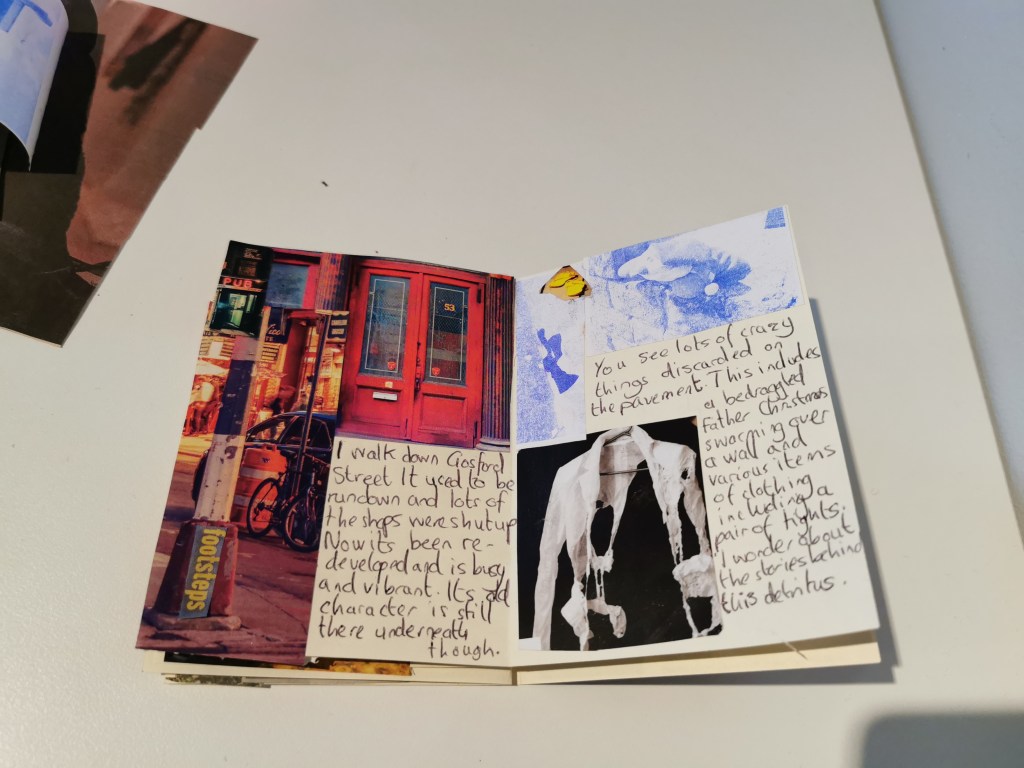 PUB
53
footsteps
I walk down Gosford
Street It used to be
rundown and lots of
the shops were shut up
Now its been re-
developed and is busy
and vibrant. Its old
character is still
there underneath
though.
You see lots of crazy
things discarded on
the pavement. This includes
a bedraggled
Father Christmas
swarming over
a wall and
various items
of clothing
including a
pair of tights.
I wonder about
the stories behind
this detritus.